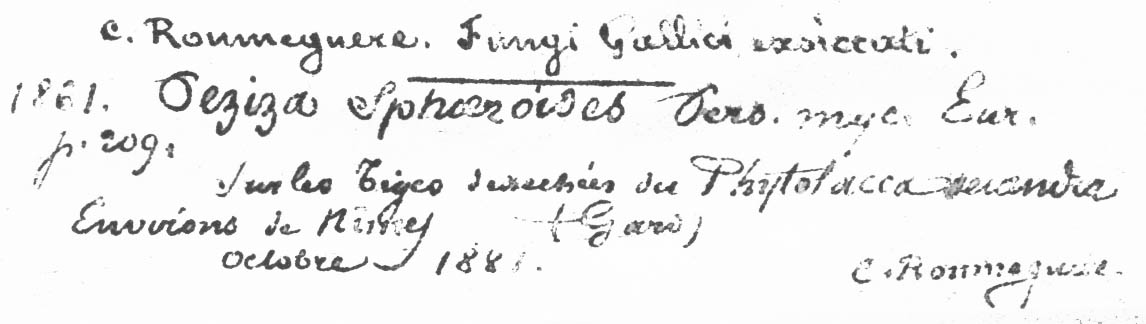 C. Roumeguere. Fungi Gallici exsiccati.
1861. Peziza Sphæroides Pers. myc. Eur.
p. 209.
Sur les Tiges dessechées du Phytolacca decandra
Environs de Nimes (Gard)
Octobre 1881.
C. Roumeguere.